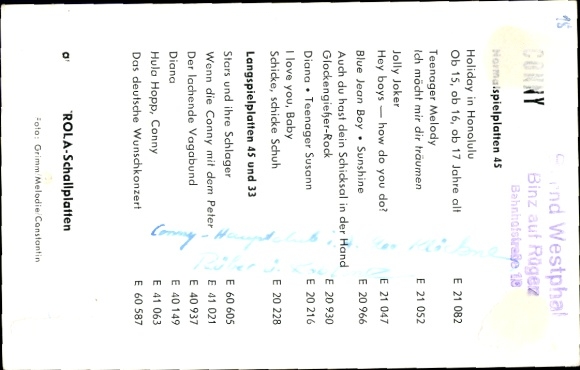 CONNY
Normalspielplatten 45
Holiday in Honolulu
Ob 15, ob 16, ob 17 Jahre alt E 21 082
Teenager Melody
Ich möcht mir dir träumen E 21 052
Jolly Joker
Hey boys — how do you do? E 21 047
Blue Jean Boy • Sunshine E 20 966
Auch du hast dein Schicksal in der Hand
Glockengießer-Rock E 20 930
Diana • Teenager Susann E 20 216
I love you, Baby
Schicke, schicke Schuh E 20 228
Langspielplatten 45 und 33
Stars und ihre Schlager E 60 605
Wenn die Conny mit dem Peter E 41 021
Der lachende Vagabund E 40 937
Diana E 40 149
Hula Hopp, Conny E 41 063
Das deutsche Wunschkonzert E 60 587
ROLA-Schallplatten
Foto: Grimm/Melodie/Constantin
nd Westphal
Binz auf Rügen
Bahnhofstraße 18
Conny -